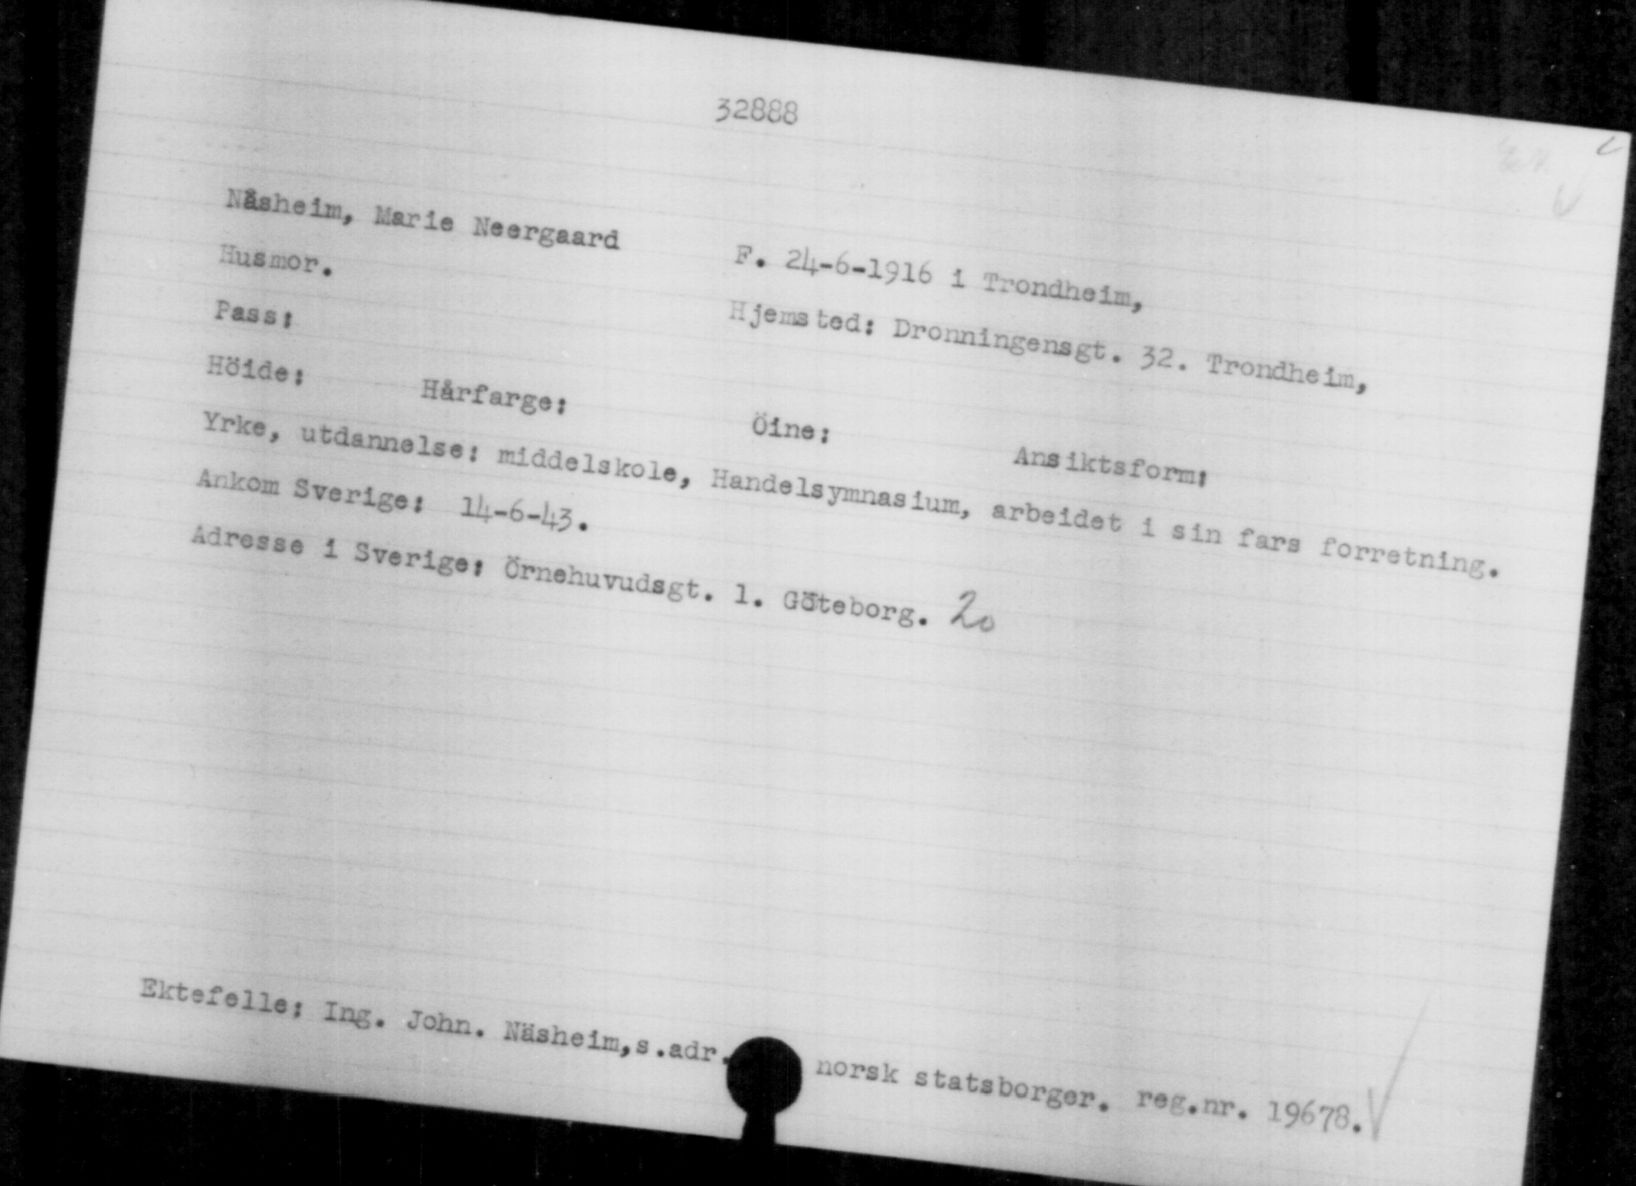 32888
Näsheim, Marie Neergaard F. 24-6-1916 i Trondheim,
Husmor. Hjemsted: Dronningensgt. 32. Trondheim,
Pass:
Höide: Hårfarge: Öine: Ansiktsform:
Yrke, utdannelse: middelskole, Handelsymnasium, arbeidet i sin fars forretning.
Ankom Sverige: 14-6-43.
Adresse i Sverige: Örnehuvudsgt. 1. Göteborg. 20
Ektefelle: Ing. John. Näsheim,s.adr. norsk statsborger. reg.nr. 19678.